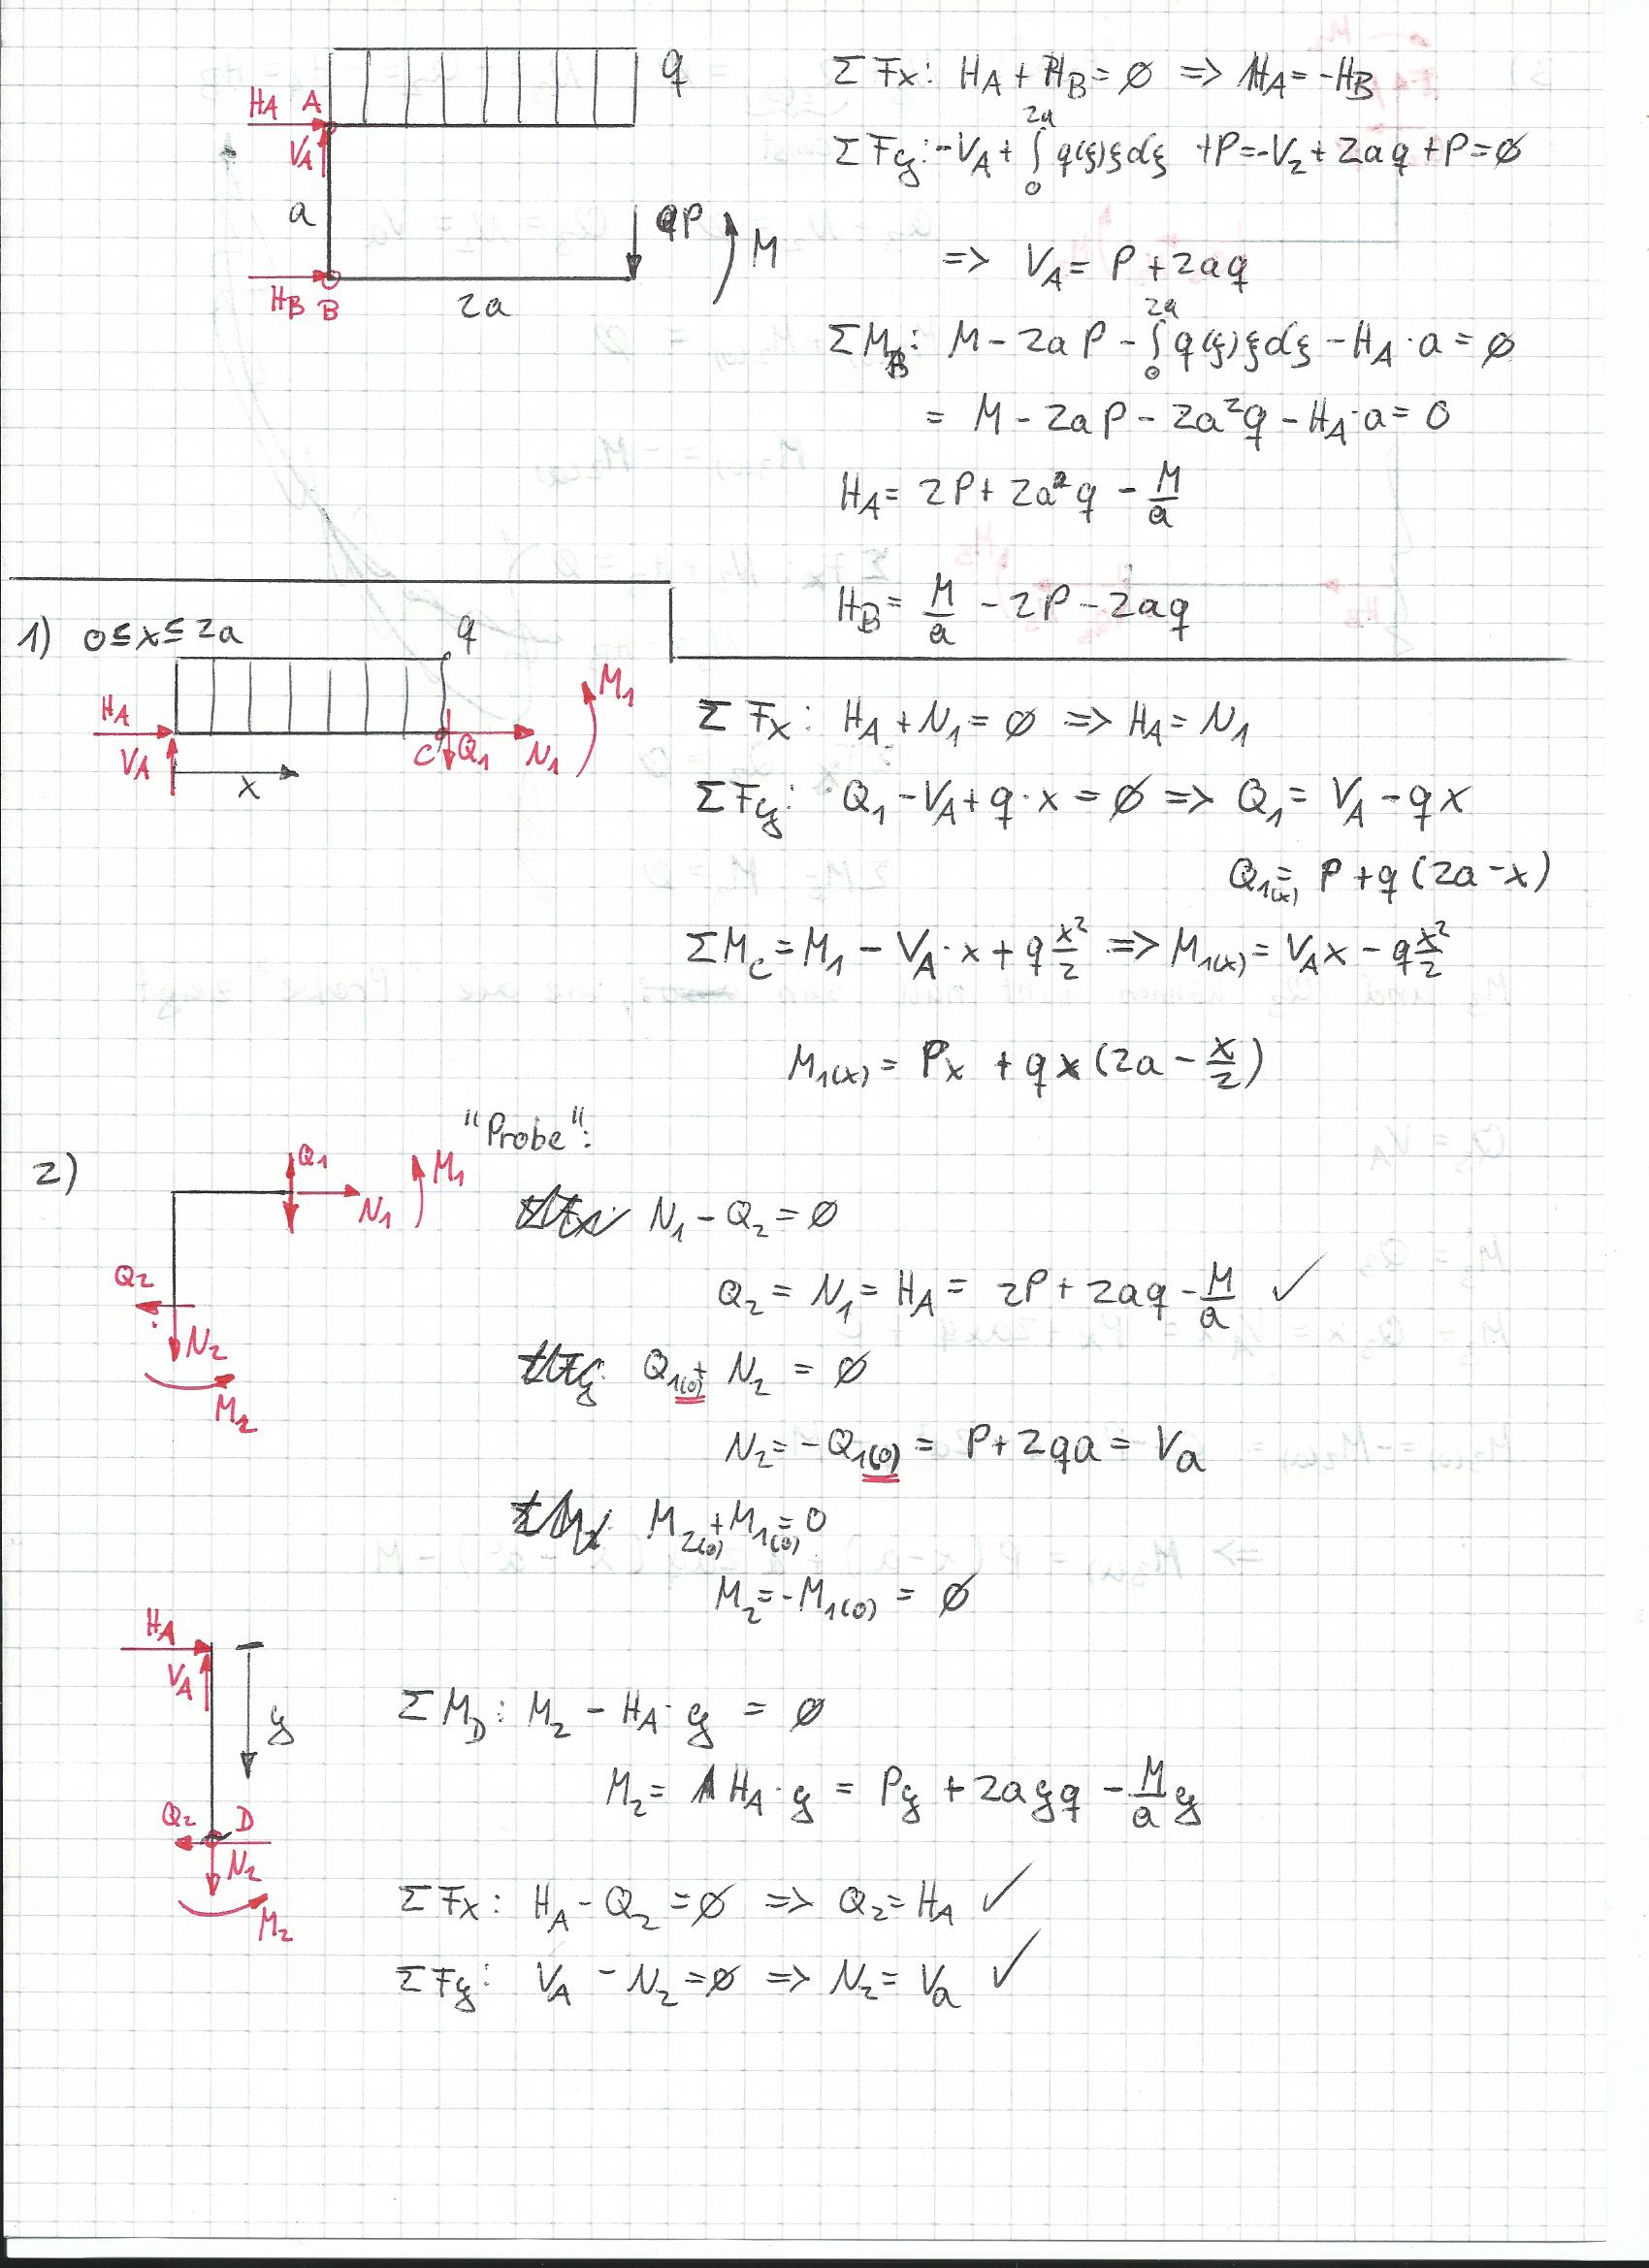 q
H_A A
V_A
a
qP
M
H_B B
2a
ΣF_x: H_A + H_B = ∅ => H_A = -H_B
ΣF_y: -V_A + ∫_0^{2a} q(ξ)ξdξ + P = -V_2 + 2aq + P = ∅
=> V_A = P + 2aq
ΣM_B: M - 2aP - ∫_0^{2a} q(ξ)ξdξ - H_A · a = ∅
= M - 2aP - 2a²q - H_A · a = 0
H_A = 2P + 2a²q - M/a
H_B = M/a - 2P - 2aq
1) 0 ≤ x ≤ 2a
q
H_A
V_A
x
C Q_1 N_1
M_1
ΣF_x: H_A + N_1 = ∅ => H_A = N_1
ΣF_y: Q_1 - V_A + q · x = ∅ => Q_1 = V_A - qx
Q_1(x) = P + q(2a - x)
ΣM_C = M_1 - V_A · x + q x²/2 => M_1(x) = V_A x - q x²/2
M_1(x) = Px + qx(2a - x/2)
2)
Q_1
N_1
M_1
Q_2
N_2
M_2
"Probe":
N_1 - Q_2 = ∅
Q_2 = N_1 = H_A = 2P + 2aq - M/a ✓
Q_1(0) + N_2 = ∅
N_2 = -Q_1(0) = P + 2qa = V_a
M_2(0) + M_1(0) = 0
M_2 = -M_1(0) = ∅
H_A
V_A
y
Q_2 D
N_2
M_2
ΣM_D: M_2 - H_A · y = ∅
M_2 = H_A · y = Py + 2ayq - M/a y
ΣF_x: H_A - Q_2 = ∅ => Q_2 = H_A ✓
ΣF_y: V_A - N_2 = ∅ => N_2 = V_a ✓